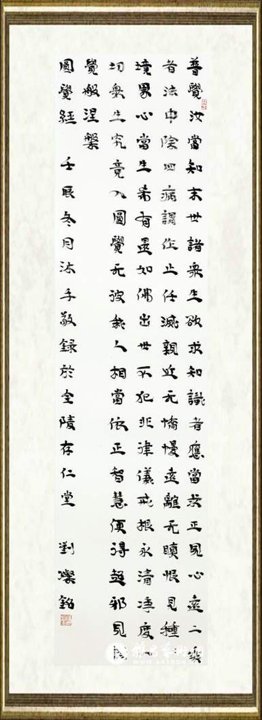 普覺汝當知末世諸眾生欲求知識者應當求正見心遠二乘
者法中除四病謂作止任滅親近无憍慢遠離无瞋恨見種
境界心當生希有還如佛出世不犯非律儀戒根永清淨度一
切眾生究竟入圓覺无彼我人相當依正智慧便得超邪見證
覺般涅槃
圓覺經 壬辰冬月沐手敬錄於金陵存仁堂 劉燦銘